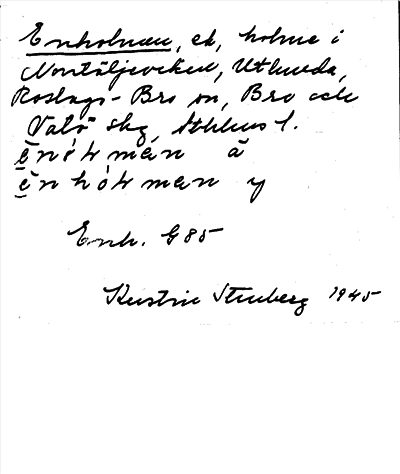 Enholmen, ek, holme i
Norrtäljeviken, Utlunda,
Roslags-Bro sn, Bro och
Vätö skg, Sthlms l.
ēnóɫman ä
ēnhóɫman y
Enh. G85
Kerstin Stenberg 1945